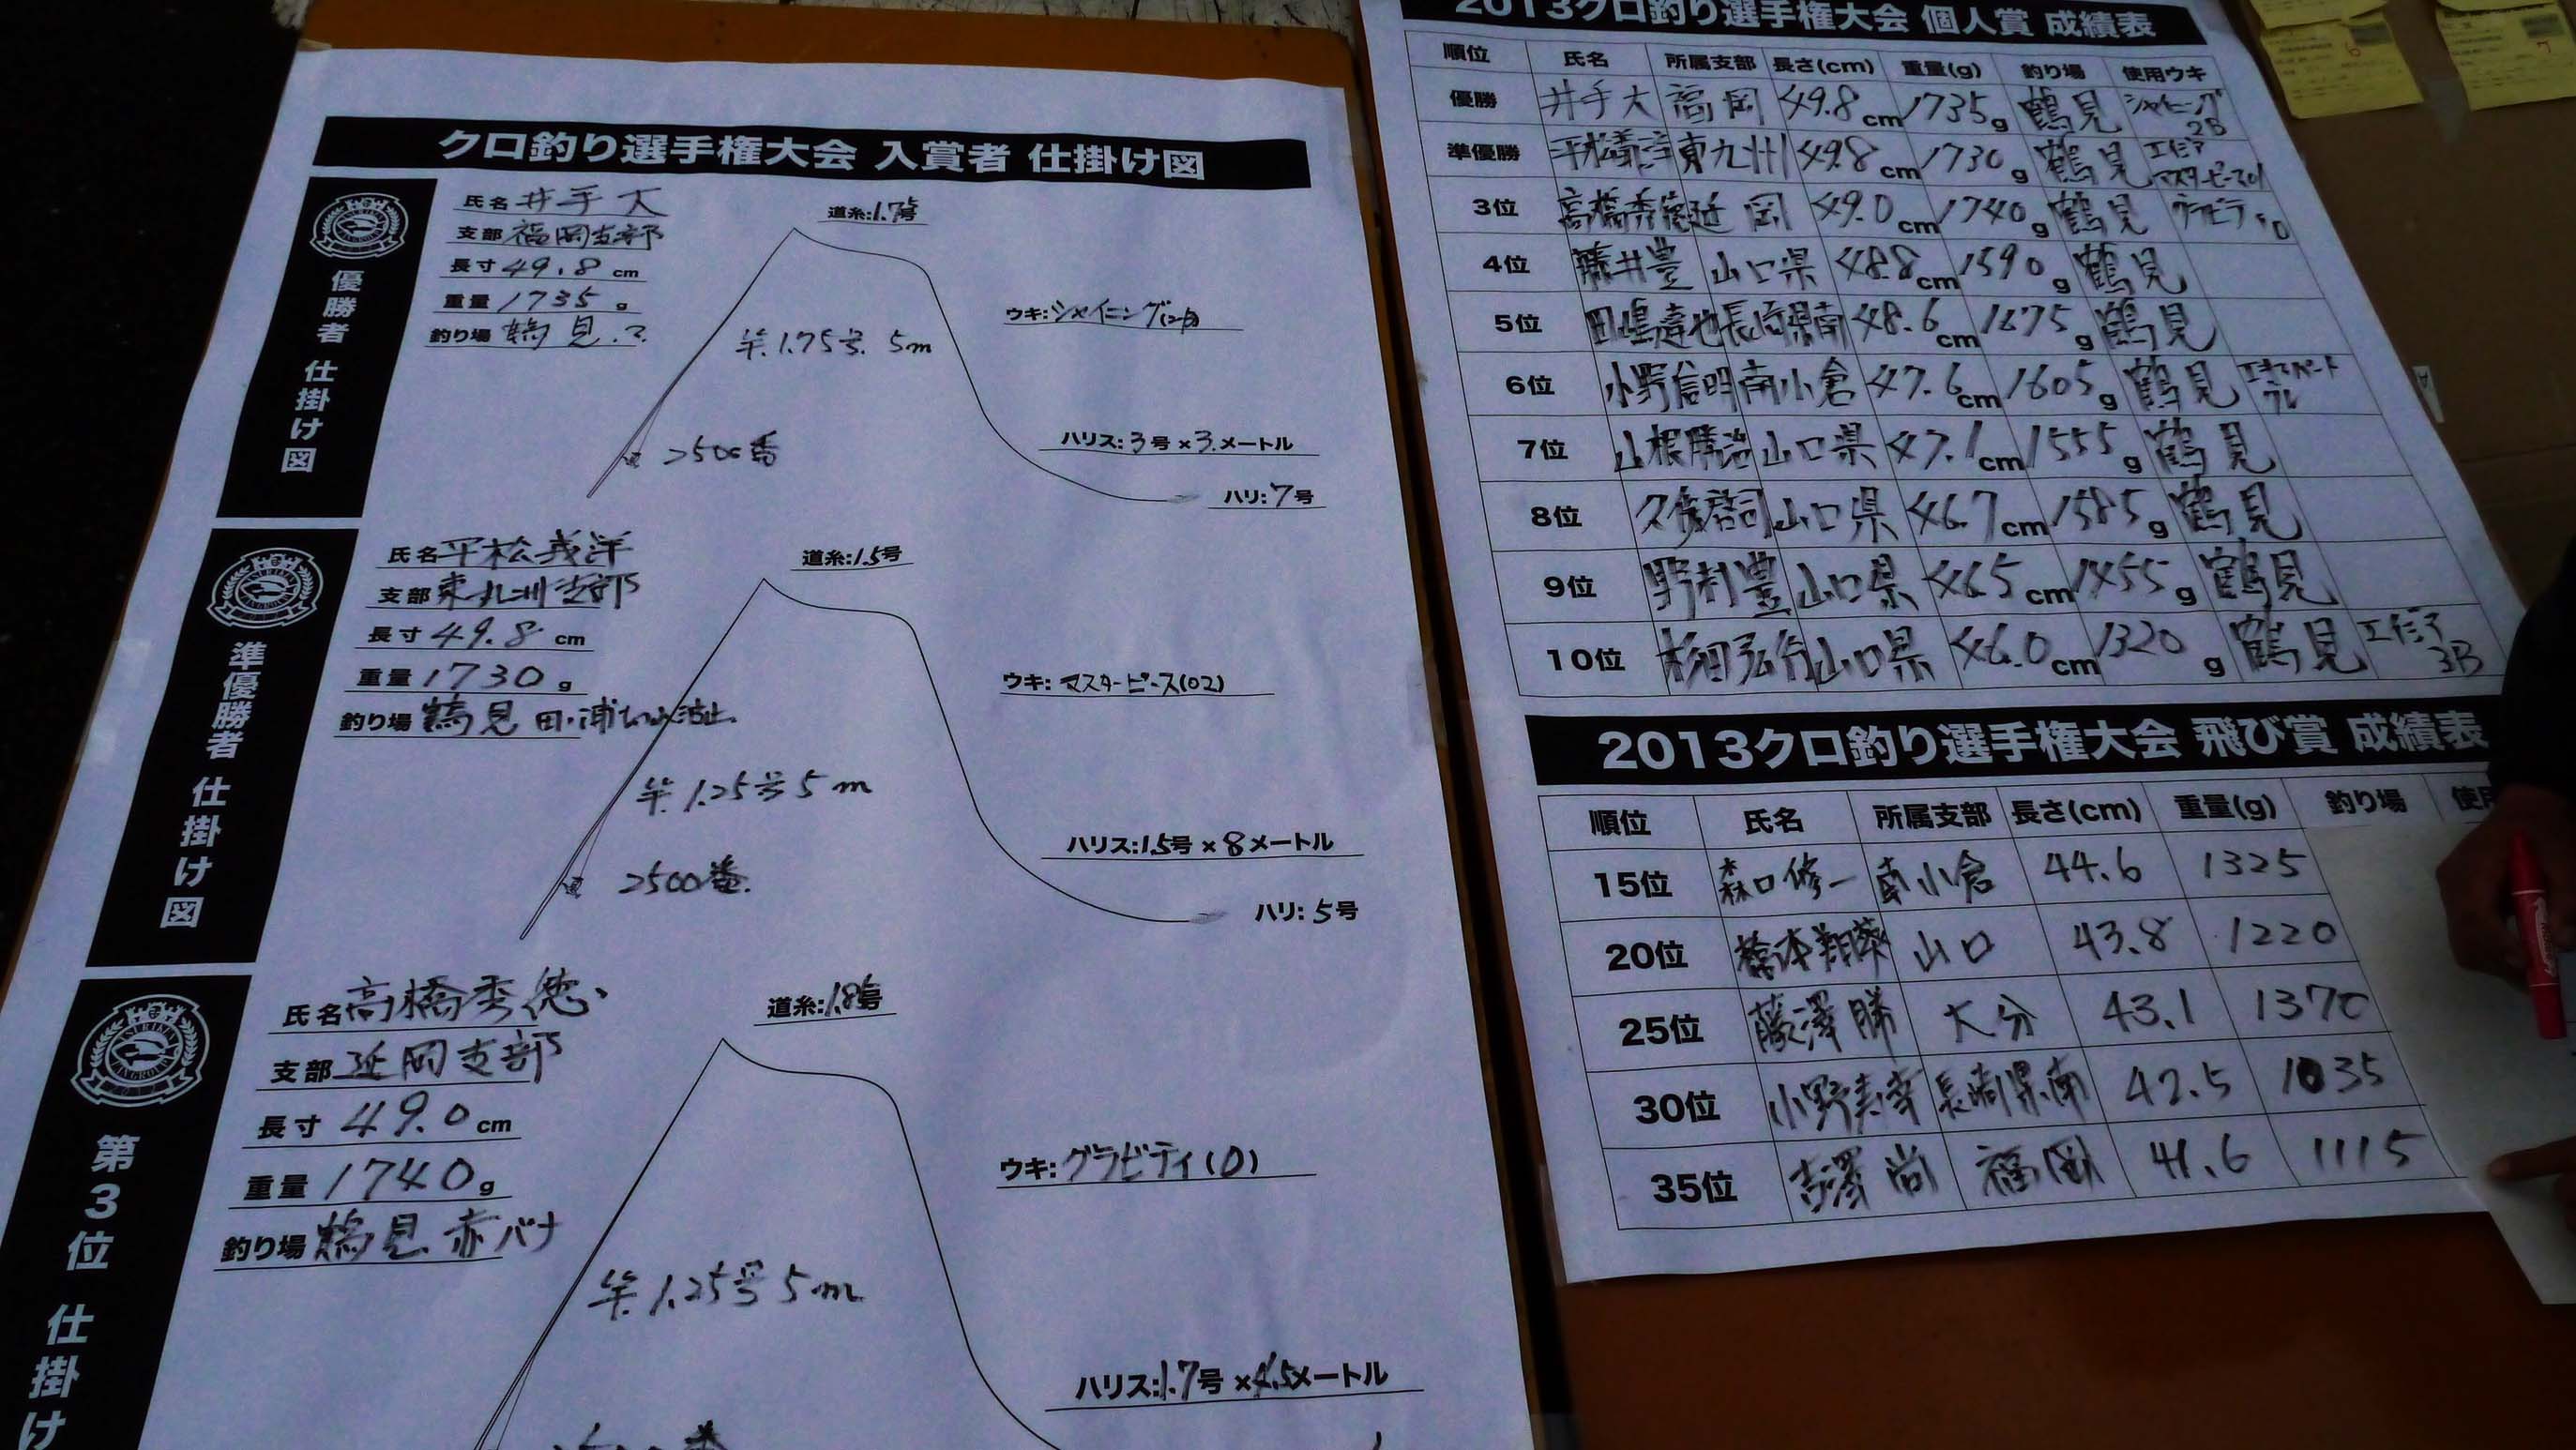 クロ釣り選手権大会 入賞者 仕掛け図
優勝者 仕掛け図
氏名 井手 大
支部 福岡支部
長寸 49.8 cm
重量 1735 g
釣り場 鶴見.?
道糸:1.7号
竿.1.75号. 5m
2500番
ウキ:シャイニング(2B)
ハリス:3号×3.メートル
ハリ:7号
準優勝者 仕掛け図
氏名 平松義洋
支部 東九州支部
長寸 49.8 cm
重量 1730 g
釣り場 鶴見 田ノ浦
道糸:1.5号
竿 1.25号 5m
2500番.
ウキ:マスターピース(02)
ハリス:1.5号×8メートル
ハリ:5号
第3位 仕掛け
氏名 高橋秀徳
支部 延岡支部
長寸 49.0 cm
重量 1740 g
釣り場 鶴見 赤バナ
道糸:1.8号
竿.1.25号 5m
ウキ:グラビティ(0)
ハリス:1.7号×4.5メートル
2013クロ釣り選手権大会 個人賞 成績表
順位 氏名 所属支部 長さ(cm) 重量(g) 釣り場 使用ウキ
優勝 井手大 福岡 49.8cm 1735g 鶴見 シャイニング 2B
準優勝 平松義洋 東九州 49.8cm 1730g 鶴見 エイジア マスターピース01
3位 高橋秀徳 延岡 49.0cm 1740g 鶴見 グラビティ0
4位 藤井豊 山口県 48.8cm 1590g 鶴見
5位 長崎県南 48.6cm 1675g 鶴見
6位 小野信明 南小倉 47.6cm 1605g 鶴見 エキスパート
7位 山根勝治 山口県 47.1cm 1555g 鶴見
8位 山口県 46.7cm 1585g 鶴見
9位 野村豊 山口県 46.5cm 1455g 鶴見
10位 山口県 46.0cm 1320g 鶴見 エイジア 3B
2013クロ釣り選手権大会 飛び賞 成績表
順位 氏名 所属支部 長さ(cm) 重量(g) 釣り場 使用
15位 森口修一 南小倉 44.6 1325
20位 橋本 山口 43.8 1220
25位 藤澤 勝 大分 43.1 1370
30位 小野 長崎県南 42.5 1035
35位 吉澤 尚 福岡 41.6 1115